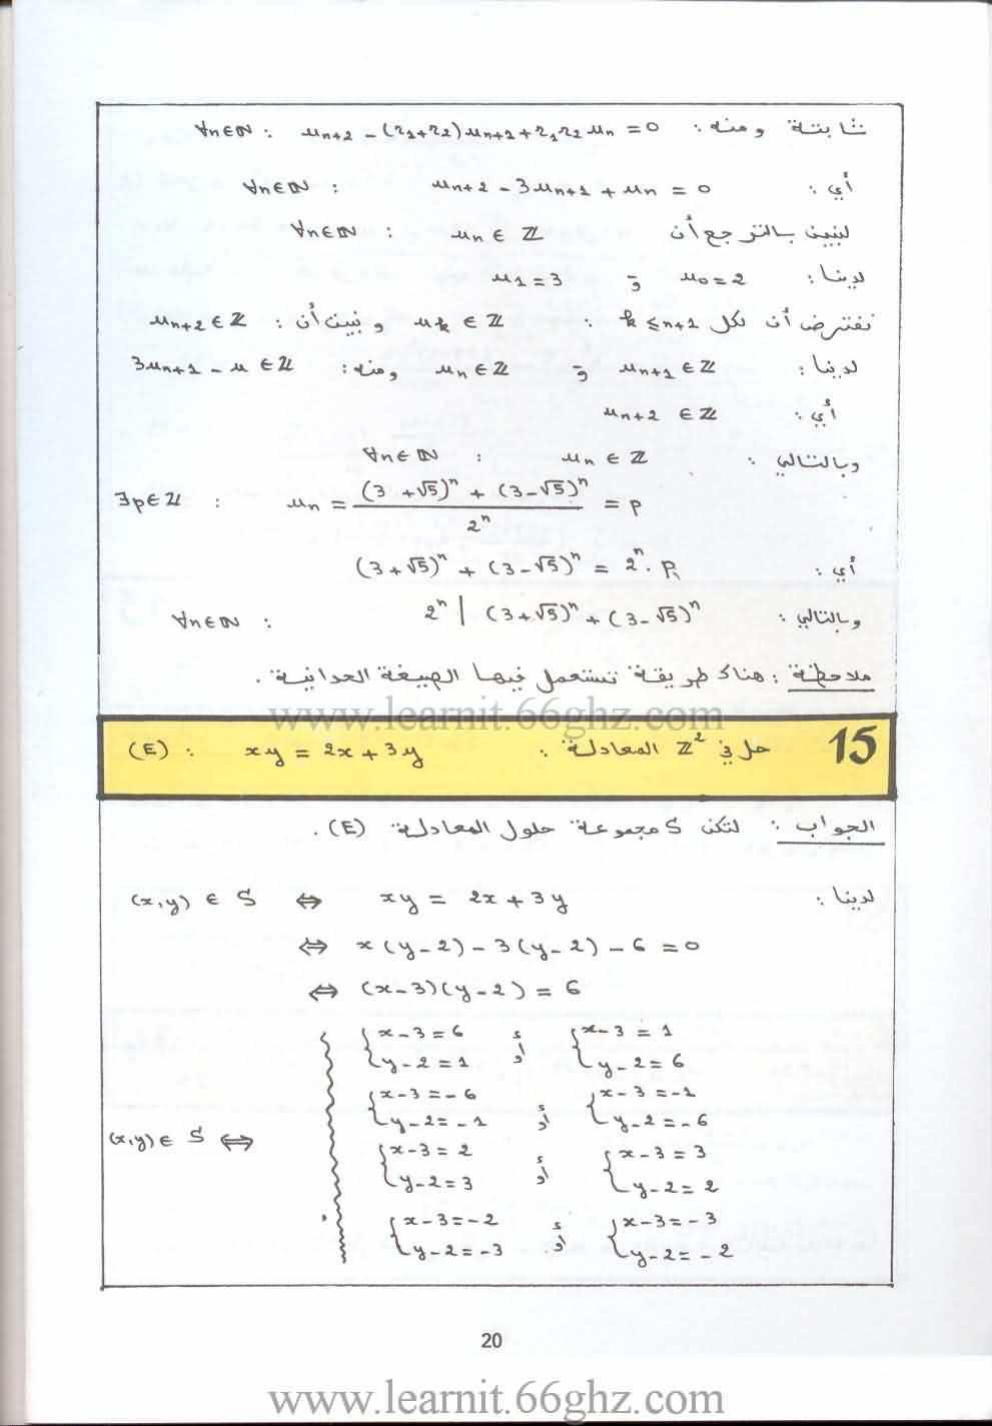 ثابتة ومنه : u_{n+2} - (r_1+r_2)u_{n+1} + r_1r_2 u_n = 0 : ∀n∈ℕ
أي : u_{n+2} - 3u_{n+1} + u_n = 0 : ∀n∈ℕ
لنبين بالترجع أن u_n ∈ ℤ : ∀n∈ℕ
لدينا : u_0 = 2 و u_1 = 3
نفترض أن لكل k ≤ n+1 : u_k ∈ ℤ ونبين أن : u_{n+2} ∈ ℤ
لدينا : u_{n+1} ∈ ℤ و u_n ∈ ℤ ومنه : 3u_{n+1} - u ∈ ℤ
أي : u_{n+2} ∈ ℤ
وبالتالي : u_n ∈ ℤ : ∀n∈ℕ
∃p∈ℤ : u_n = ((3+√5)^n + (3-√5)^n) / 2^n = p
أي : (3+√5)^n + (3-√5)^n = 2^n . p
وبالتالي : 2^n | (3+√5)^n + (3-√5)^n : ∀n∈ℕ
ملاحظة : هناك طريقة تستعمل فيها الصيغة الحدانية .
www.learnit.66ghz.com
15 حل في ℤ² المعادلة : xy = 2x + 3y : (E)
الجواب : لتكن S مجموعة حلول المعادلة (E) .
لدينا : (x,y) ∈ S ⇔ xy = 2x + 3y
⇔ x(y-2) - 3(y-2) - 6 = 0
⇔ (x-3)(y-2) = 6
{x-3 = 6 أو {x-3 = 1
y-2 = 1 y-2 = 6
{x-3 = -6 أو {x-3 = -1
y-2 = -1 y-2 = -6
(x,y) ∈ S ⇔
{x-3 = 2 أو {x-3 = 3
y-2 = 3 y-2 = 2
{x-3 = -2 أو {x-3 = -3
y-2 = -3 y-2 = -2
20
www.learnit.66ghz.com